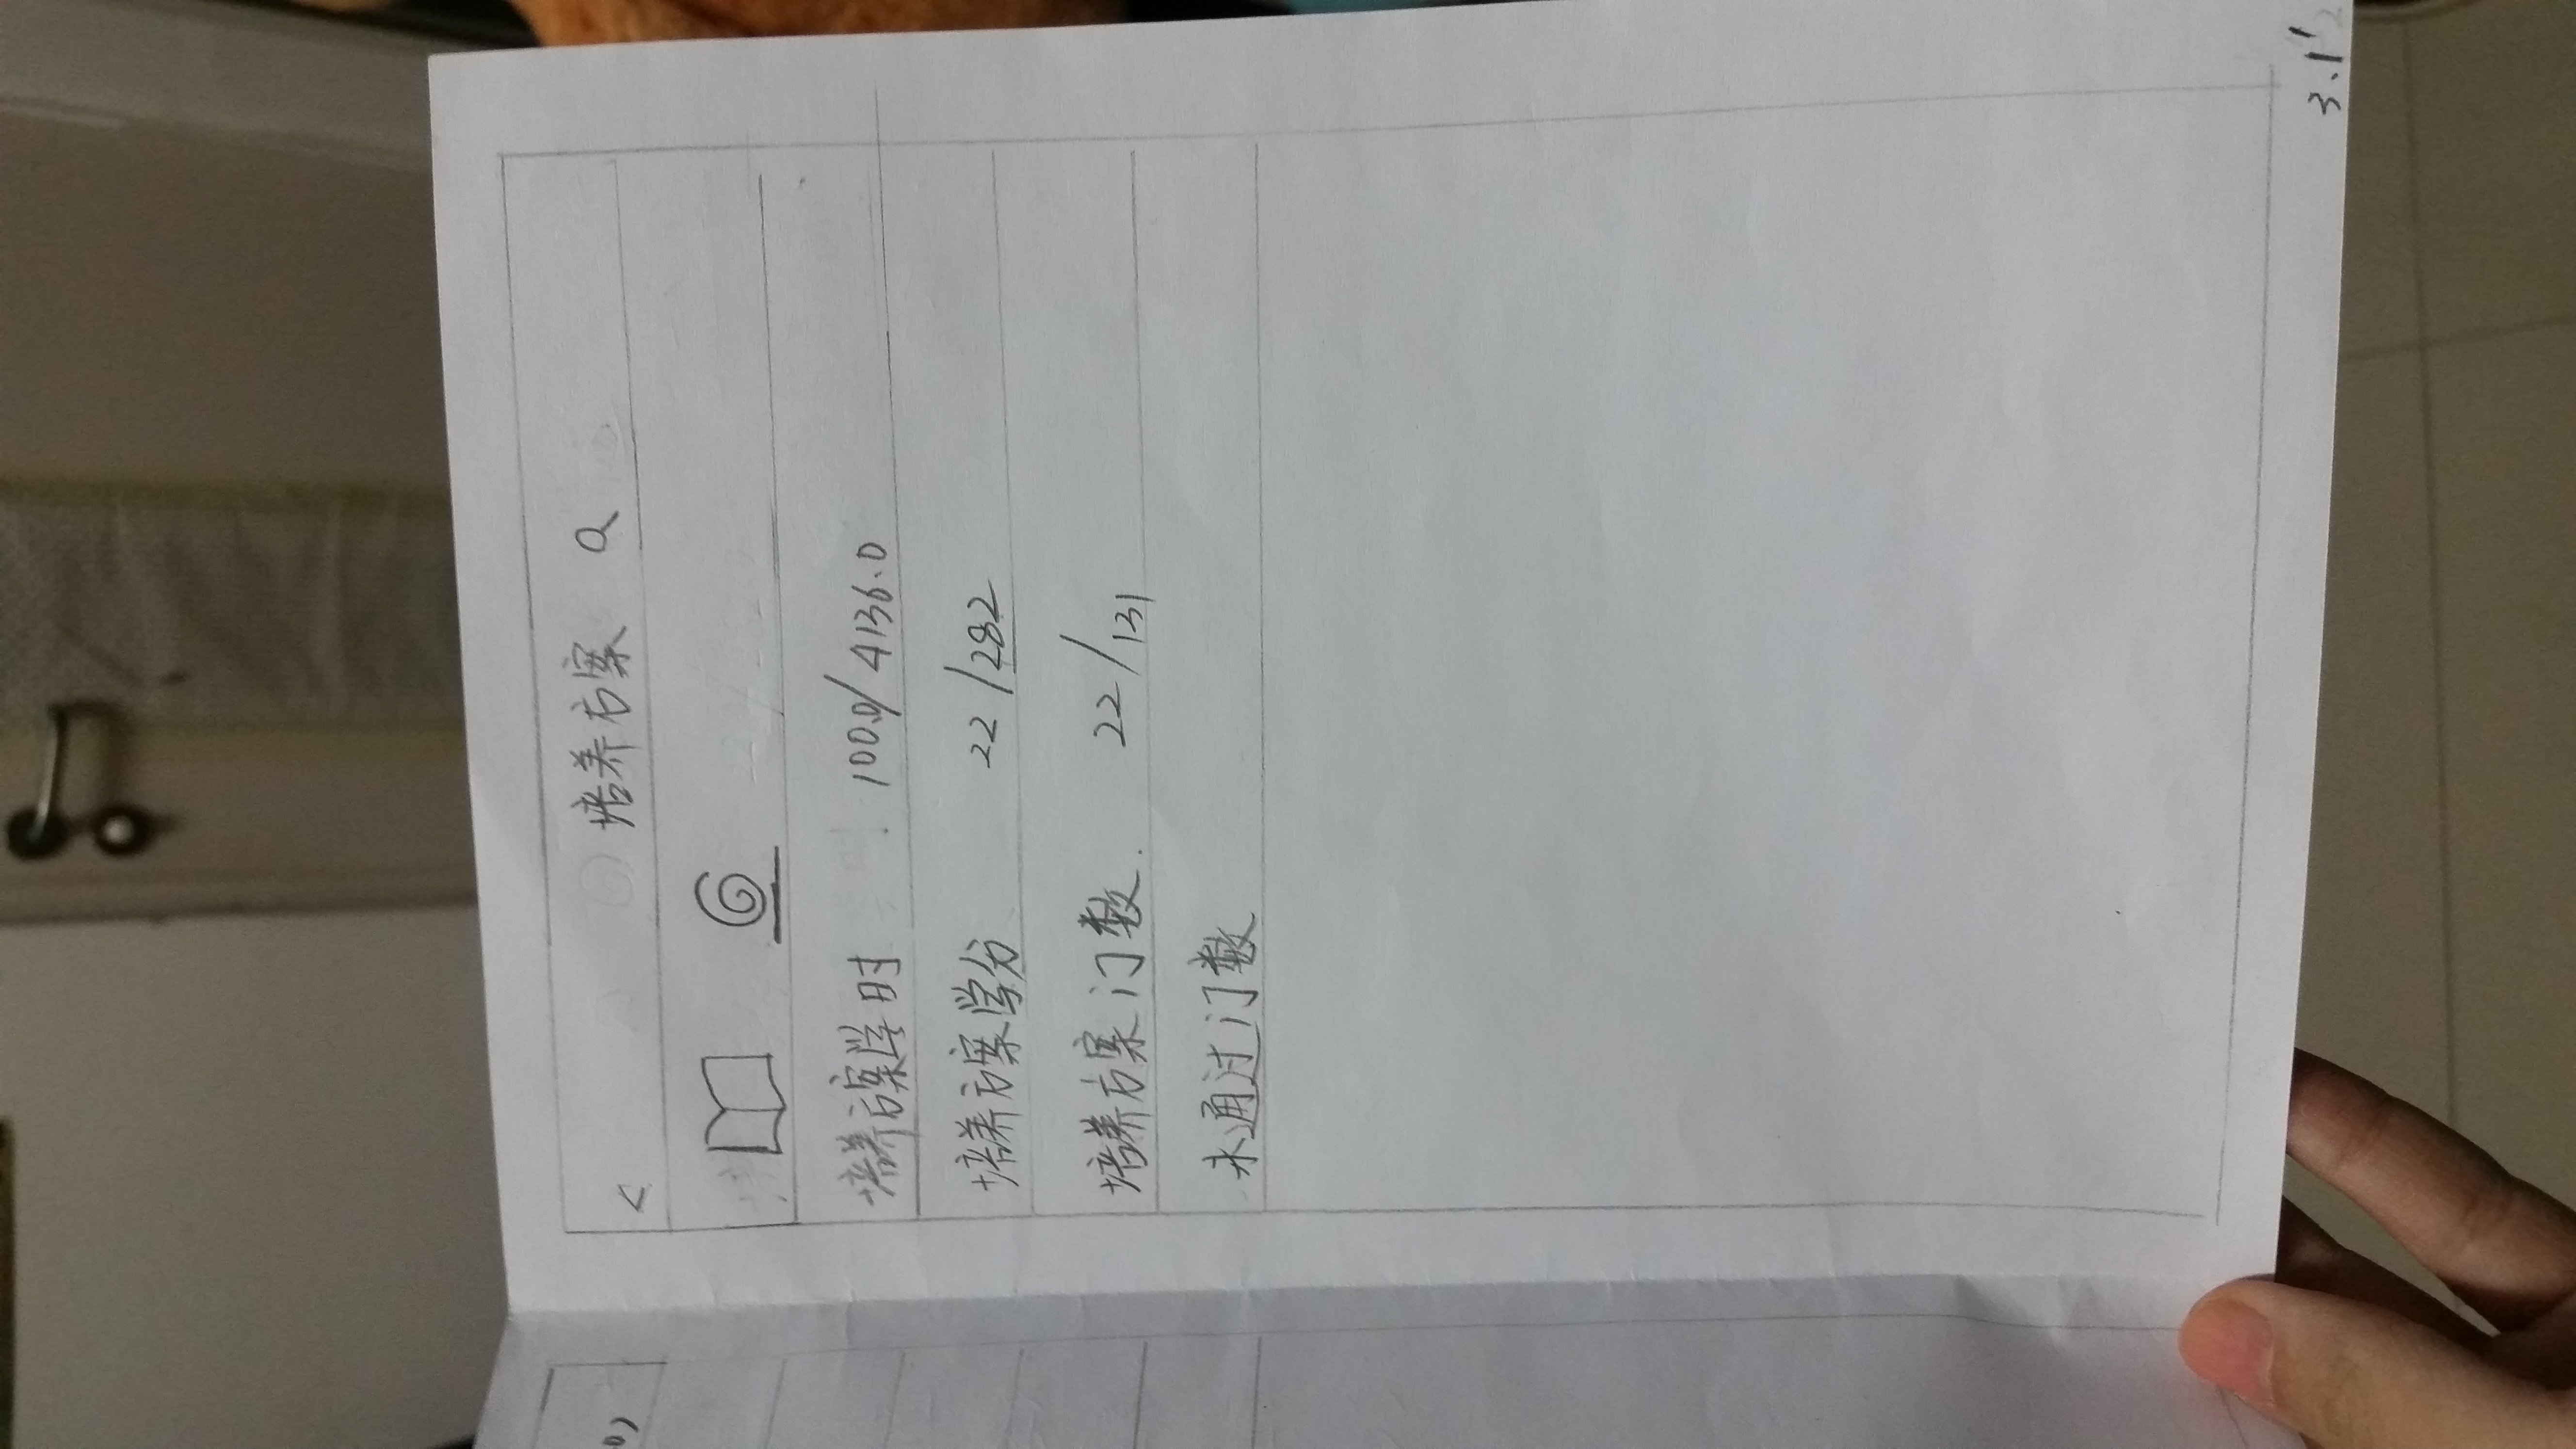 < 培养方案
培养方案学时 100.0/4136.0
培养方案学分 22/282
培养方案门数. 22/131
未通过门数